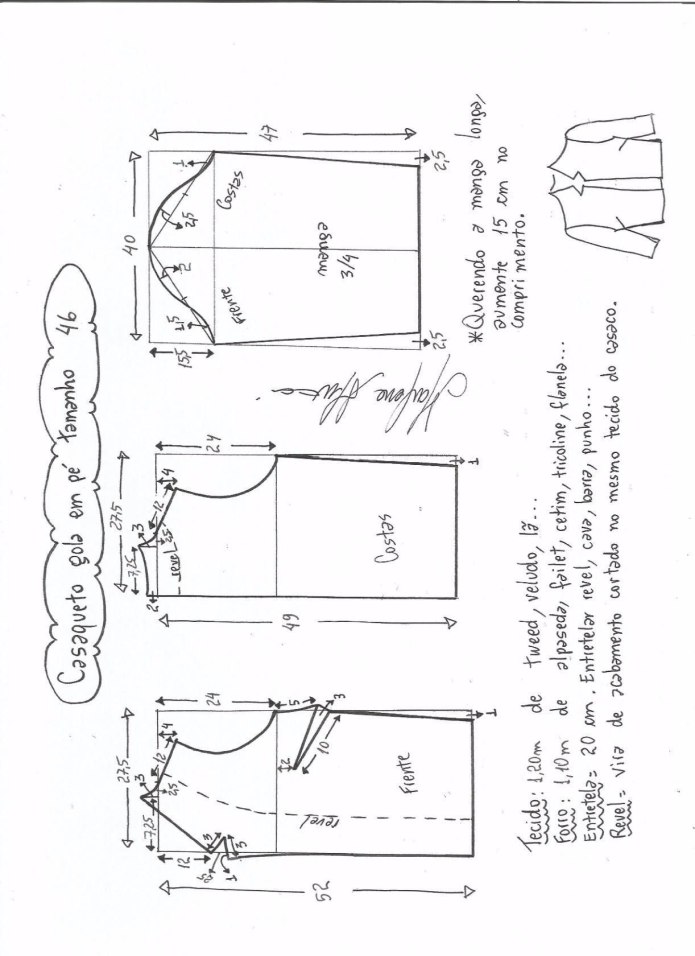 Casaqueto gola em pé tamanho 46
27,5
7,25
3
2,5
12
4
24
12
3
3
1
5
3
10
2
revel
Frente
52
1
27,5
7,25
3
2
2,5
12
4
24
revel
Costas
49
1
40
15,5
1,5
2
2,5
1
Frente
Costas
47
manga
3/4
2,5
2,5
*Querendo a manga longa,
aumente 15 cm no
comprimento.
Tecido: 1,20m de tweed, veludo, lã...
Forro: 1,10m de alpaseda, failet, cetim, tricoline, flanela...
Entretela= 20 cm. Entretelar revel, cava, barra, punho...
Revel= vira de acabamento cortado no mesmo tecido do casaco.